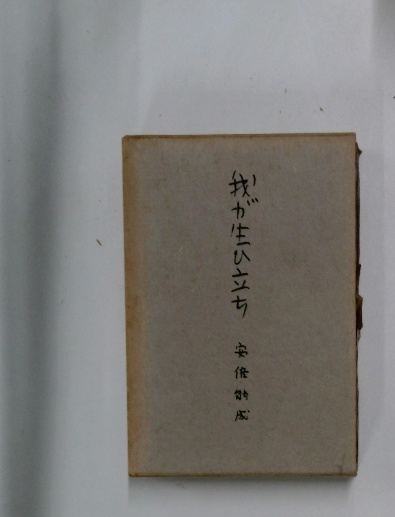 我が生ひ立ち
安倍能成